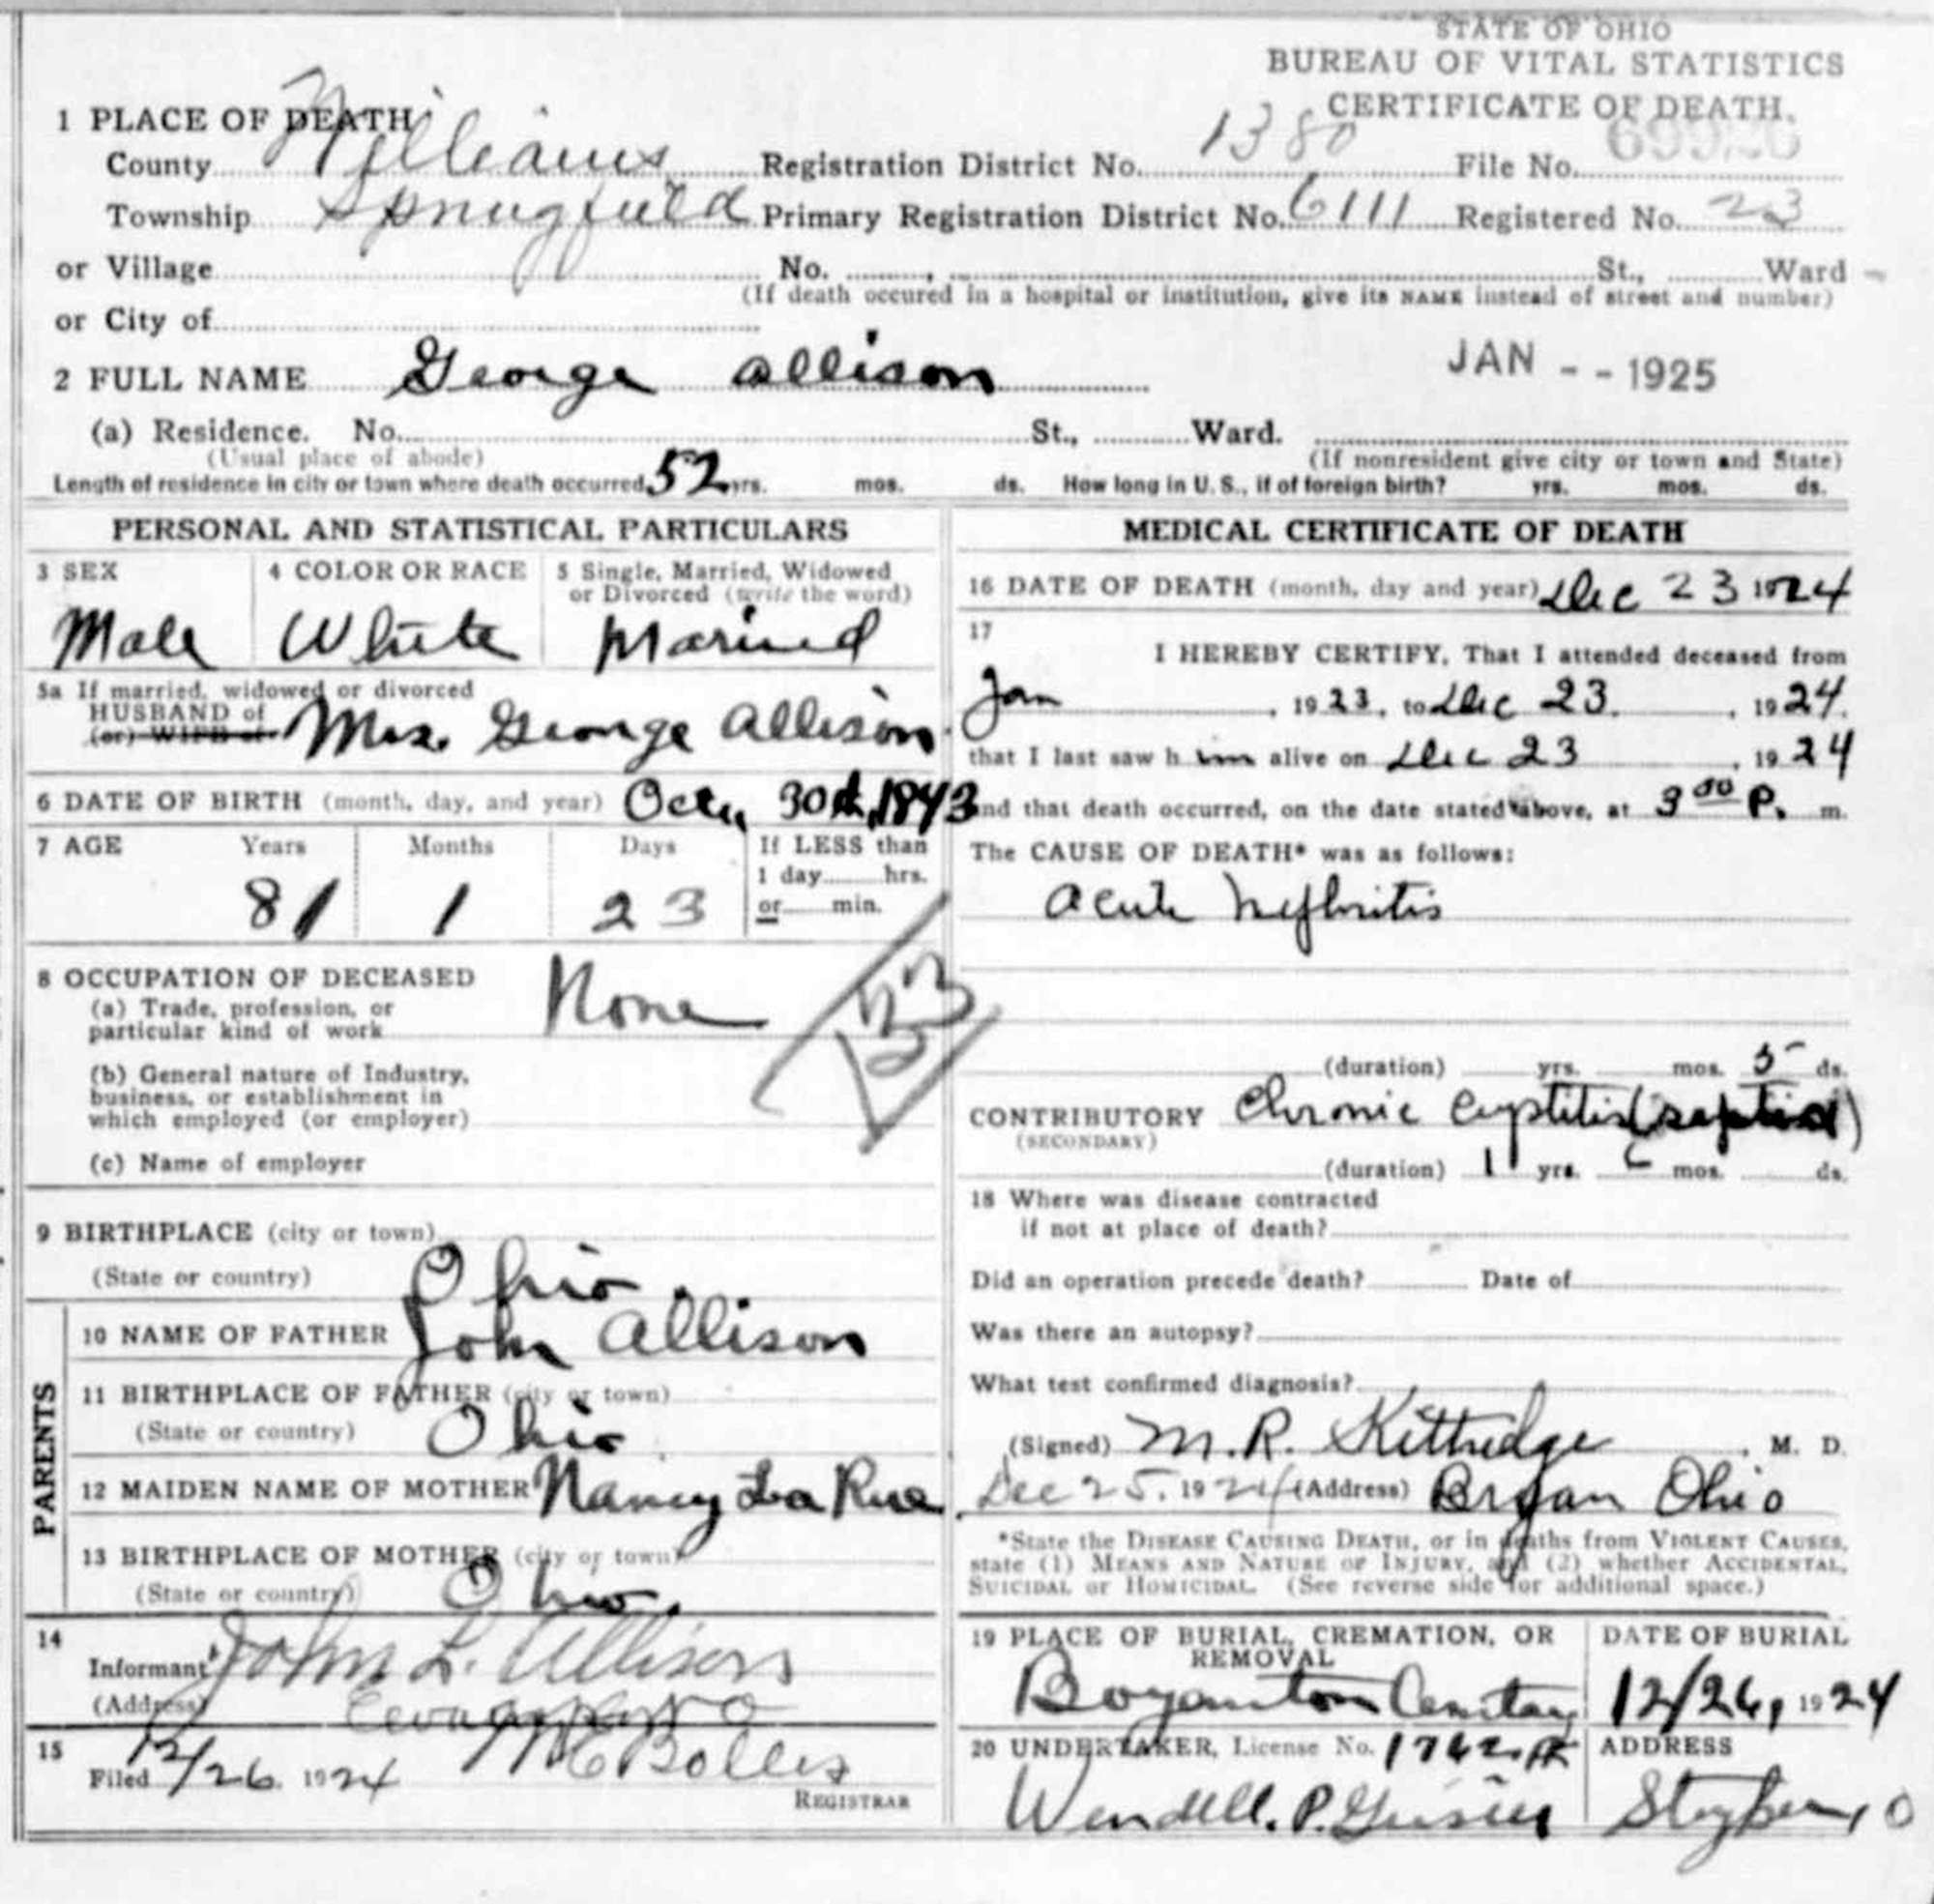 STATE OF OHIO
BUREAU OF VITAL STATISTICS
CERTIFICATE OF DEATH.
1 PLACE OF DEATH
County Williams Registration District No. 1380 File No. 69926
Township Springfield Primary Registration District No. 6111 Registered No. 23
or Village No. , St., Ward
(If death occured in a hospital or institution, give its NAME instead of street and number)
or City of
2 FULL NAME George Allison JAN - - 1925
(a) Residence. No. St., Ward.
(Usual place of abode) (If nonresident give city or town and State)
Length of residence in city or town where death occurred 52 yrs. mos. ds. How long in U. S., if of foreign birth? yrs. mos. ds.
PERSONAL AND STATISTICAL PARTICULARS
3 SEX 4 COLOR OR RACE 5 Single, Married, Widowed
or Divorced (write the word)
Male White Married
5a If married, widowed or divorced
HUSBAND of
(or) WIFE of Mrs. George Allison
6 DATE OF BIRTH (month, day, and year) Oct, 30th, 1843
7 AGE Years Months Days If LESS than
1 day hrs.
or min.
81 1 23
8 OCCUPATION OF DECEASED
(a) Trade, profession, or
particular kind of work None
133
(b) General nature of Industry,
business, or establishment in
which employed (or employer)
(c) Name of employer
9 BIRTHPLACE (city or town)
(State or country) Ohio.
PARENTS
10 NAME OF FATHER John Allison
11 BIRTHPLACE OF FATHER (city or town)
(State or country) Ohio
12 MAIDEN NAME OF MOTHER Nancy La Rue
13 BIRTHPLACE OF MOTHER (city or town)
(State or country) Ohio.
14
Informant John L. Allison
(Address) O
15
Filed 12/26. 1924 Bolles
REGISTRAR
MEDICAL CERTIFICATE OF DEATH
16 DATE OF DEATH (month, day and year) Dec 23 1924
17
I HEREBY CERTIFY, That I attended deceased from
Jan , 1923, to Dec 23. , 1924.
that I last saw h im alive on Dec 23 , 1924
and that death occurred, on the date stated above, at 3 00 P. m.
The CAUSE OF DEATH* was as follows:
Acute Nephritis
(duration) yrs. mos. 5 ds.
CONTRIBUTORY Chronic Cystitis (septic)
(SECONDARY)
(duration) 1 yrs. mos. ds.
18 Where was disease contracted
if not at place of death?
Did an operation precede death? Date of
Was there an autopsy?
What test confirmed diagnosis?
(Signed) M. R. Kittredge , M. D.
Dec 25, 1924 (Address) Bryan Ohio
*State the DISEASE CAUSING DEATH, or in deaths from VIOLENT CAUSES,
state (1) MEANS AND NATURE OF INJURY, and (2) whether ACCIDENTAL,
SUICIDAL or HOMICIDAL. (See reverse side for additional space.)
19 PLACE OF BURIAL, CREMATION, OR
REMOVAL
DATE OF BURIAL
Boynton Cemetary 12/26, 1924
20 UNDERTAKER, License No. 1762. A ADDRESS
Wendell. P. Stryker, O